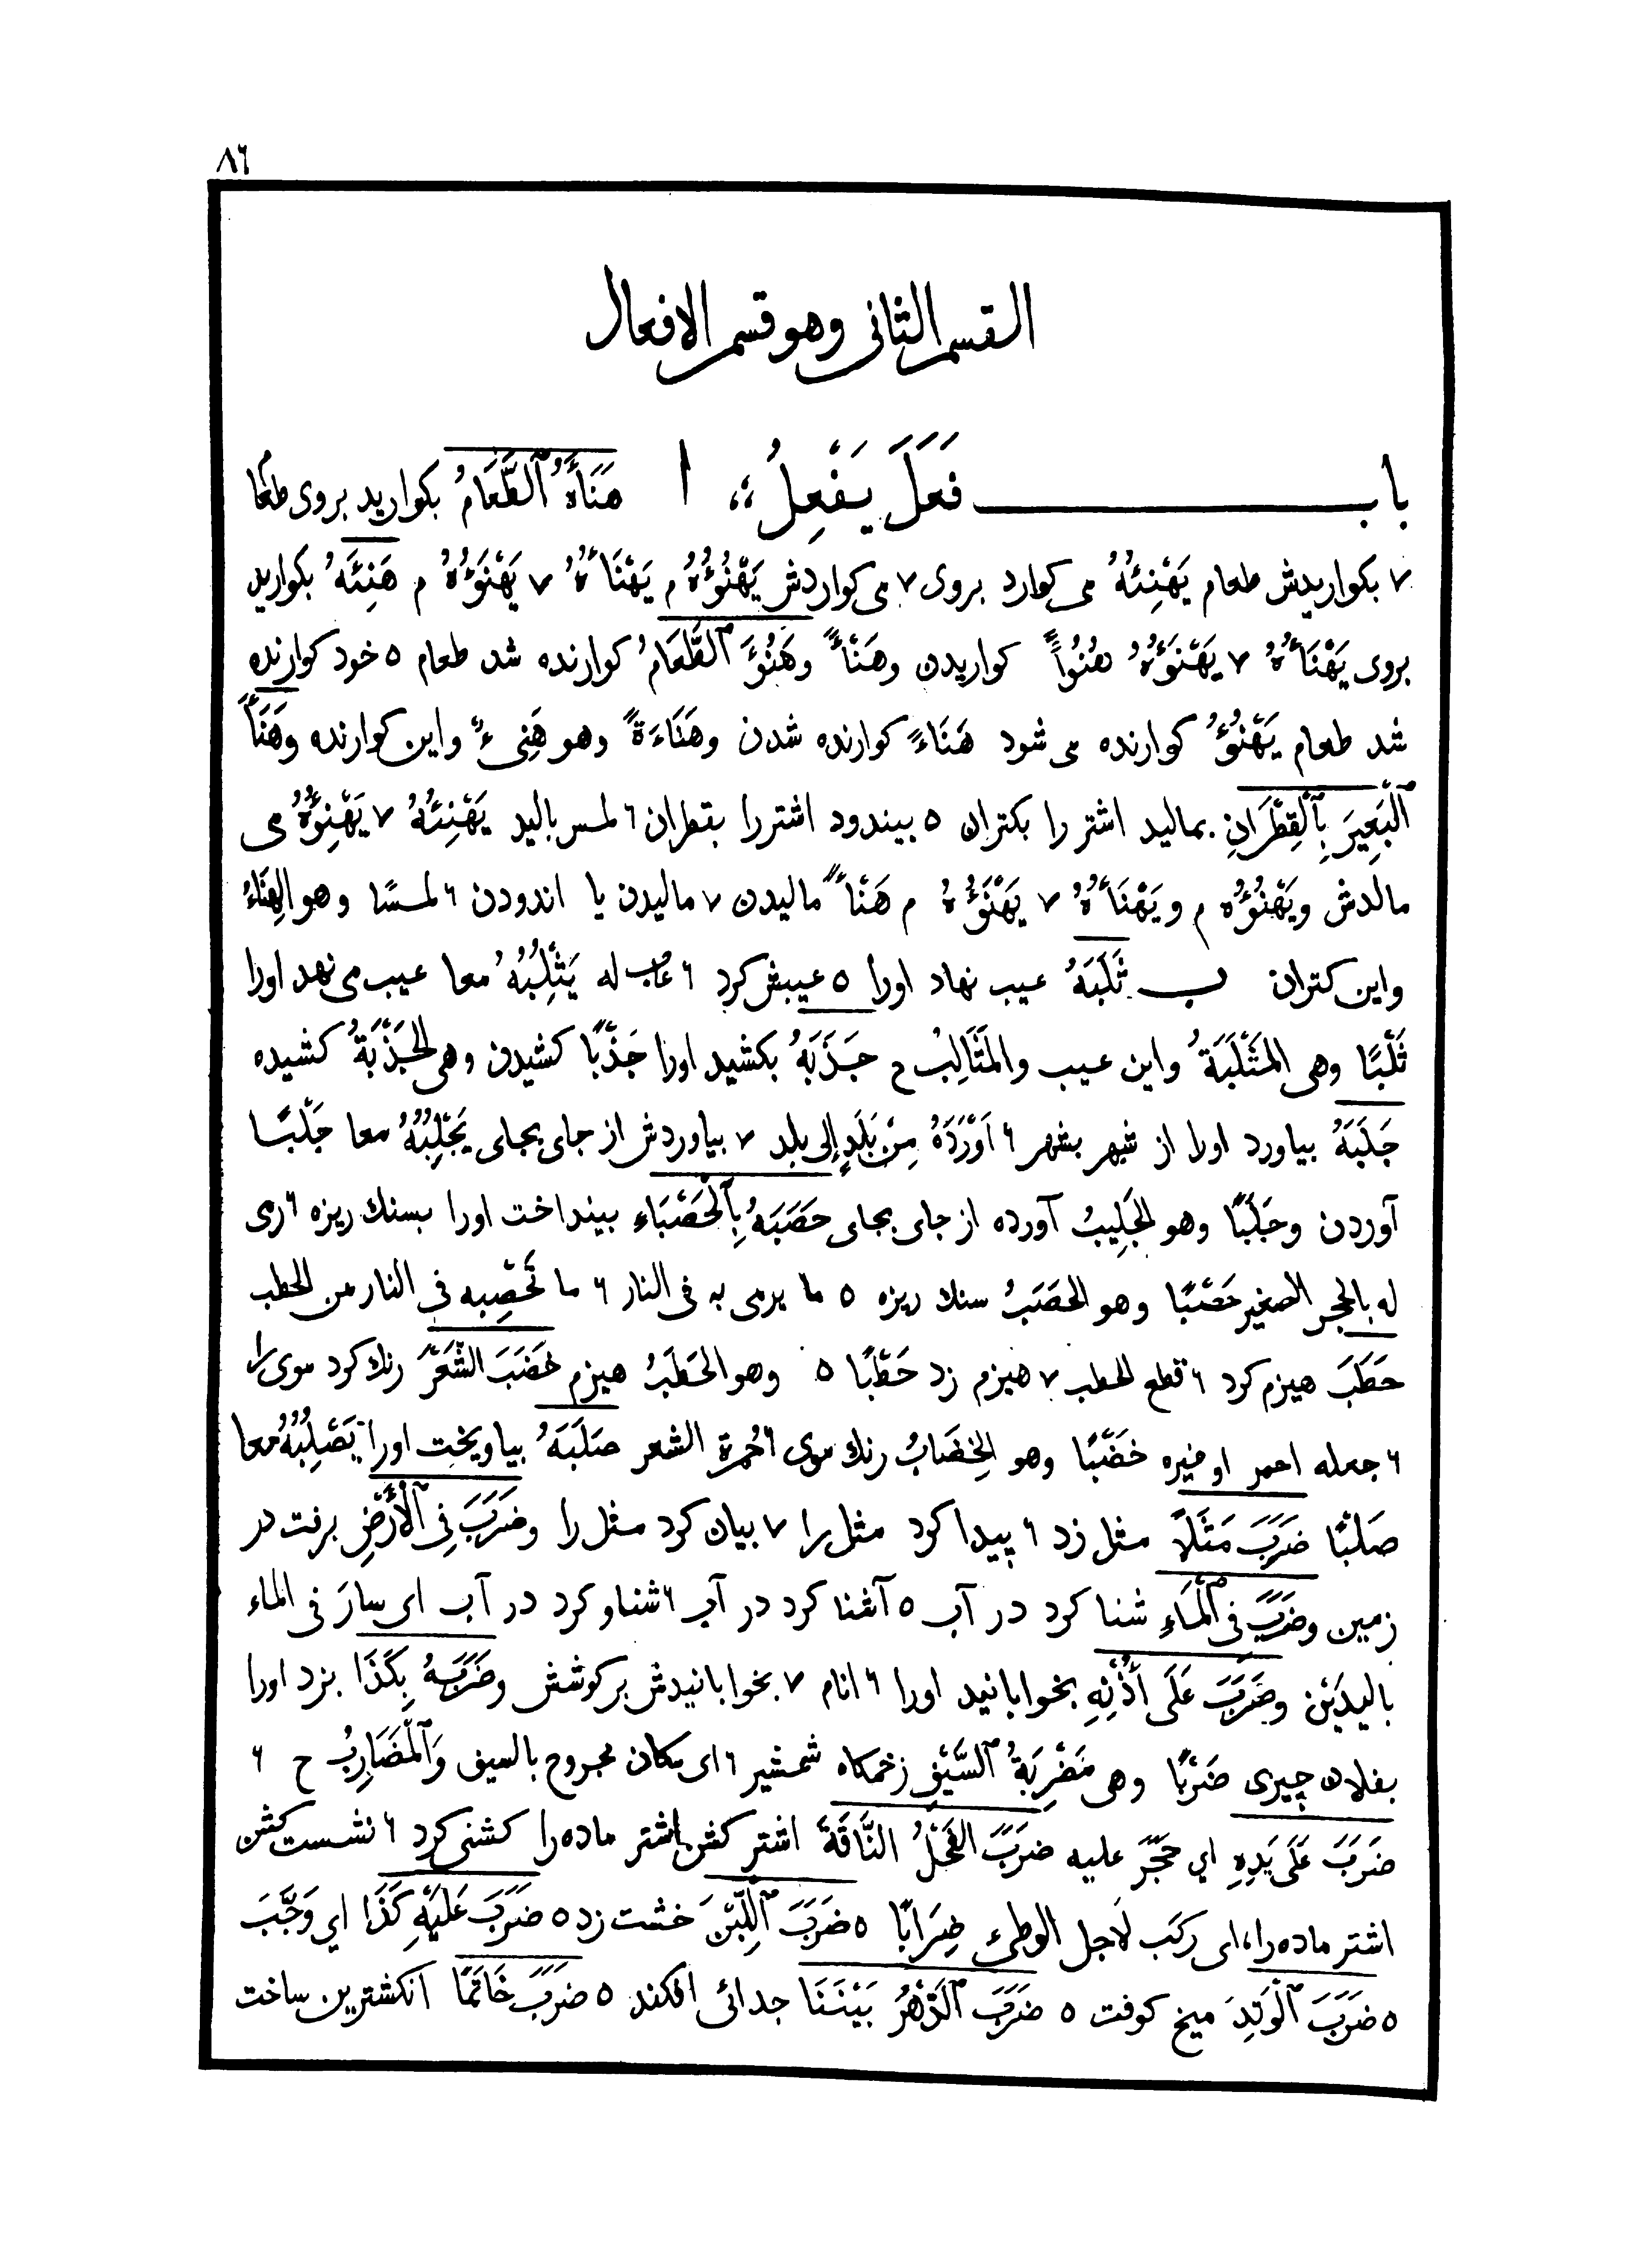 ٨٦
القسم الثانى وهو قسم الافعال
باب فَعَلَ يَفْعِلُ ا هَنَأَهُ ٱلطَّعَامُ بكواريد بروى طعام
٧ بكواريدش طعام يَهْنِئُهُ مى كوارد بروى ٧ مى كواردش يَهْنُؤُهُ م يَهْنَأُهُ ٧ يَهْنَؤُهُ م هَنِئَهُ بكواريد
بروى يَهْنَأُهُ ٧ يَهْنَؤُهُ هُنُوأً كواريدن وهَنْأً وهَنُؤَ ٱلطَّعَامُ كوارنده شد طعام ٥ خود كوارنده
شد طعام يَهْنُؤُ كوارنده مى شود هَنَاءً كوارنده شدن وهَنَاءَةً وهو هَنِىءٌ واين كوارنده وهَنَأَ
ٱلْبَعِيرَ بِٱلْقِطْرَانِ بماليد اشتر را بكتران ٥ بيندود اشتررا بقطران ٦ لمس باليد يَهْنِئُهُ ٧ يَهْنِؤُهُ مى
مالدش ويَهْنُؤُه م ويَهْنَأُهُ ٧ يَهْنَؤُهُ م هَنْأً ماليدن ٧ ماليدن يا اندودن ٦ لمسًا وهو الهِنَاءُ
واين كتران ب ثَلَبَهُ عيب نهاد اورا ٥ عيبش كرد ٦ عاب له يَثْلِبُهُ معا عيب مى نهد اورا
ثَلْبًا وهى المَثْلَبَةُ واين عيب والمَثَالِبُ ح جَذَبَهُ بكشيد اورا جَذْبًا كشيدن وهى الجَذْبَةُ كشيده
جَلَبَهُ بياورد اورا از شهر بشهر ٦ اَوْرَدَهُ مِنْ بَلَدٍ إلى بلد ٧ بياوردش از جاى بجاى يَجْلِبُهُ معا جَلْبًا
آوردن وجَلَبًا وهو الجَلِيبُ آورده از جاى بجاى حَصَبَهُ بِٱلْحَصْبَاءِ بينداخت اورا بسنك ريزه ٦ رمى
له بالحجر الصغير حَصْبًا وهو الحَصَبُ سنك ريزه ٥ ما يرمى به فى النار ٦ ما تَحْصِبه فى النار من الحطب
حَطَبَ هيزم كرد ٦ قطع الحطب ٧ هيزم زد حَطْبًا ٥ وهو الحَطَبُ هيزم خَضَبَ الشَّعَرَ رنك كرد موى را
٦ جعله احمر او غيره خَضْبًا وهو الخِضَابُ رنك موى ٦ حُمرة الشعر صَلَبَهُ بياويخت اورا يَصْلِبُهُ معا
صَلْبًا ضَرَبَ مَثَلًا مثل زد ٦ پيدا كرد مثل را ٧ بيان كرد مثل را وضَرَبَ فِى ٱلْأَرْضِ برفت در
زمين وضَرَبَ فى ٱلْمَاءِ شنا كرد در آب ٥ آشنا كرد در آب ٦ شناو كرد در آب اى سارَ فى الماء
باليدَيْن وضَرَبَ عَلَى أُذْنِهِ بخوابانيد اورا ٦ انام ٧ بخوابانيدش بر كوشش وضَرَبَهُ بِكَذَا بزد اورا
بفلان چيزى ضَرْبًا وهى مَضْرِبَةُ ٱلسَّيْفِ زخمكاه شمشير ٦ اى مكان مجروح بالسيف وَٱلْمَضَارِبُ ح ٦
ضَرَبَ عَلَى يَدِهِ اي حَجَرَ عليه ضَرَبَ الفَحْلُ النَّاقَةَ اشتر كشن اشتر ماده را كشنى كرد ٦ نشست كشن
اشتر ماده را، اى ركب لاجل الوطىء ضِرَابًا ٥ ضَرَبَ ٱللَّبِنَ خشت زد ٥ ضَرَبَ عَلَيْهِ كَذَا اي وَجَبَ
٥ ضَرَبَ ٱلْوَتِدَ ميخ كوفت ٥ ضَرَبَ ٱلدَّهْرُ بَيْنَنَا جدائى افكند ٥ ضَرَبَ خَاتَمًا انكشترين ساخت